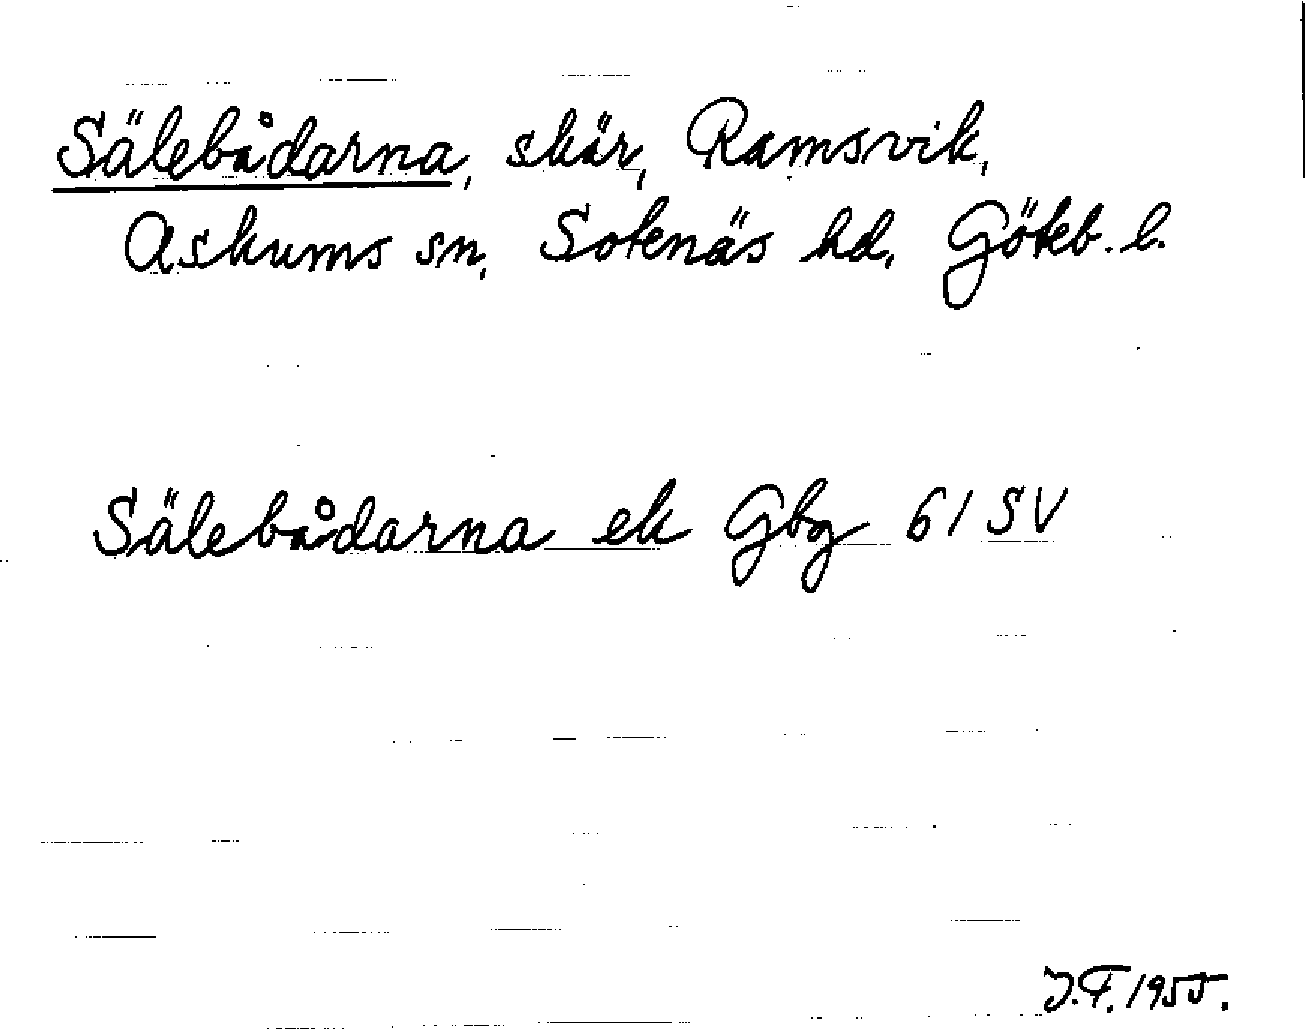 Sälebådarna, skär, Ramsvik,
Askums sn, Sotenäs hd, Göteb. l.
Sälebådarna ek Gbg 61 SV
J.F. 1955.